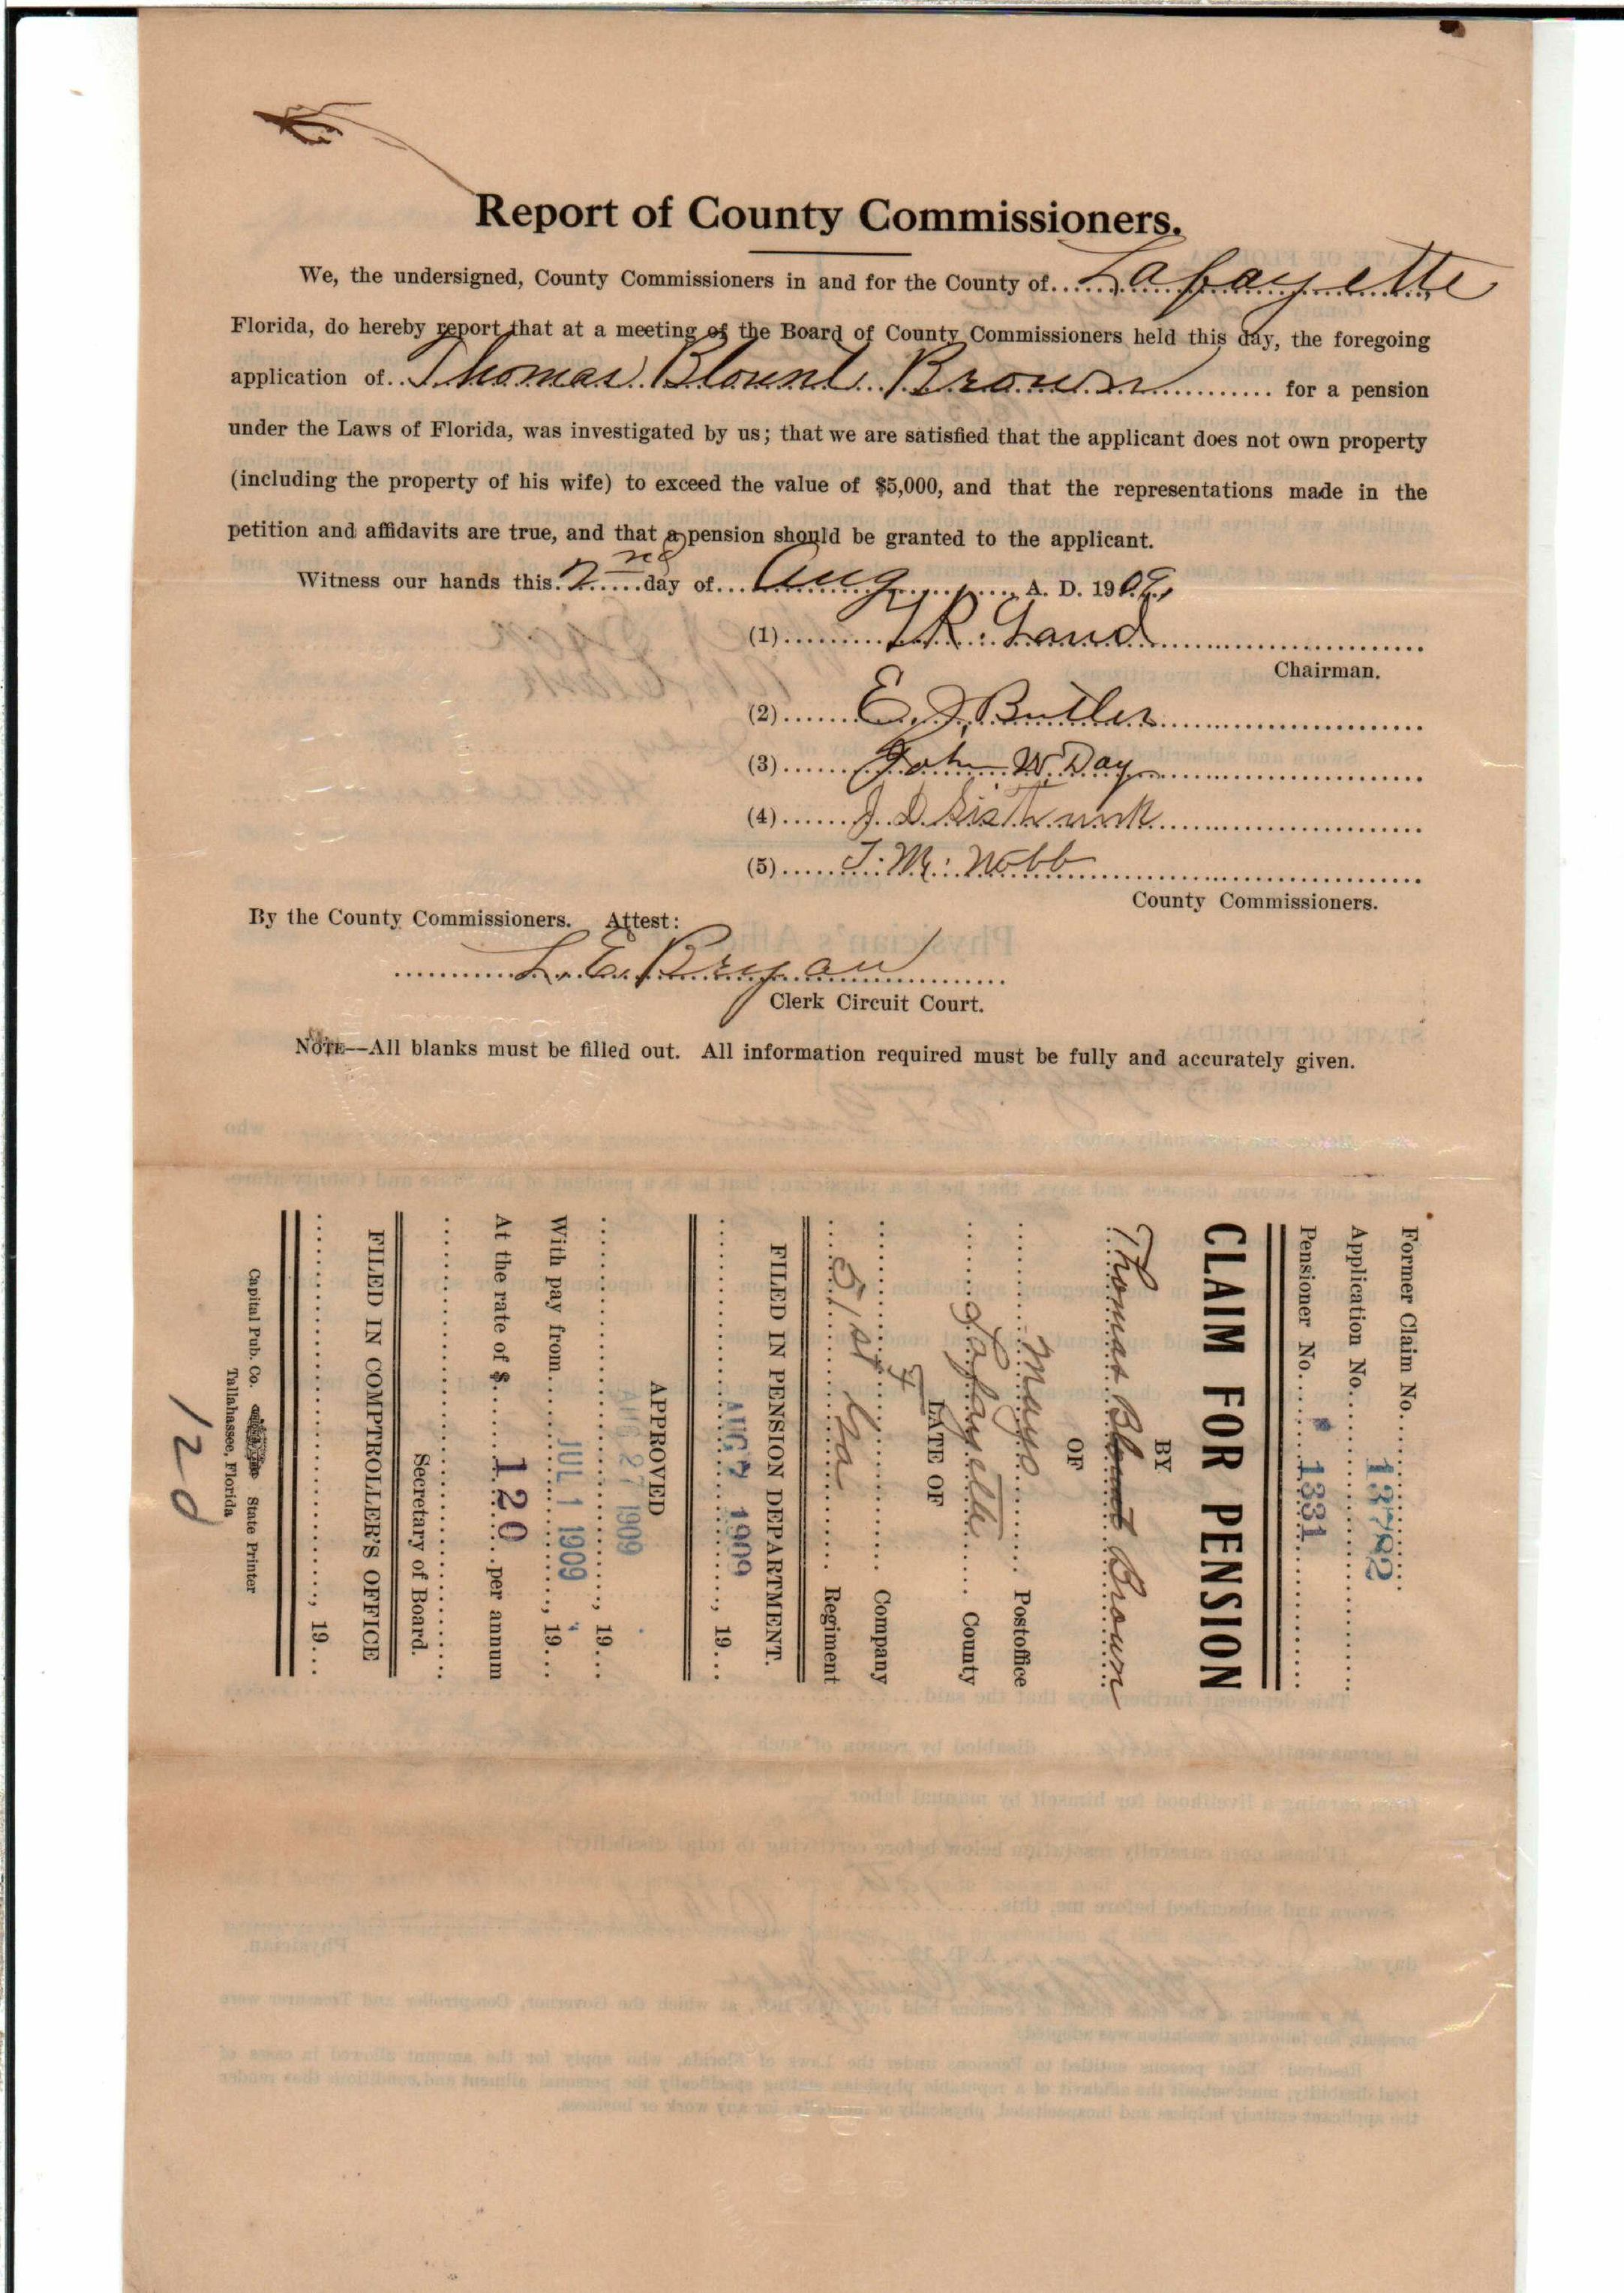 Report of County Commissioners.
We, the undersigned, County Commissioners in and for the County of Lafayette
Florida, do hereby report that at a meeting of the Board of County Commissioners held this day, the foregoing
application of Thomas Blount Brown for a pension
under the Laws of Florida, was investigated by us; that we are satisfied that the applicant does not own property
(including the property of his wife) to exceed the value of $5,000, and that the representations made in the
petition and affidavits are true, and that a pension should be granted to the applicant.
Witness our hands this 2nd day of Aug A. D. 1909,
(1) R. Land
Chairman.
(2) E. J. Butler
(3) John W. Day
(4) J D Sistrunk
(5) T. M. Webb
County Commissioners.
By the County Commissioners. Attest:
L. E. Bryan
Clerk Circuit Court.
NOTE—All blanks must be filled out. All information required must be fully and accurately given.
Former Claim No.
Application No. 13782
Pensioner No. 1331
CLAIM FOR PENSION
BY
Thomas Blount Brown
OF
Mayo Postoffice
Lafayette County
LATE OF
Company
51st Ga Regiment
FILED IN PENSION DEPARTMENT.
AUG 7 1909, 19
APPROVED
AUG 27 1909, 19
With pay from JUL 1 1909, 19
At the rate of $ 120 per annum
Secretary of Board.
FILED IN COMPTROLLER'S OFFICE
, 19
Capital Pub. Co. State Printer
Tallahassee, Florida
120